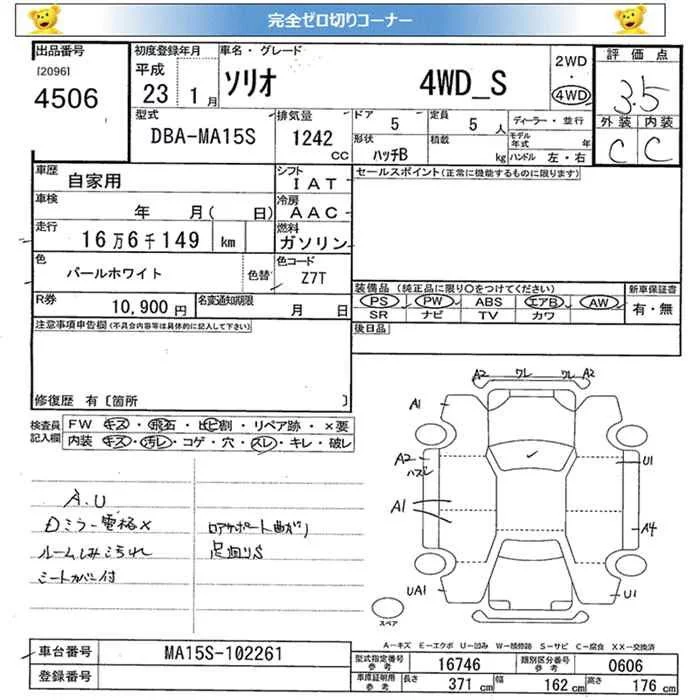 完全ゼロ切りコーナー
出品番号
[2096]
4506
初度登録年月
平成
23 1月
車名・グレード
ソリオ 4WD_S
2WD
・
4WD
評価点
3.5
外装 内装
C C
型式
DBA-MA15S
排気量
1242
CC
ドア
5
定員
5人
ディーラー・並行
形状
ハッチB
積載
kg
モデル年式 年
ハンドル 左・右
車歴
自家用
シフト
IAT
セールスポイント(正常に機能するものに限ります)
車検
年 月( 日)
冷房
AAC
走行
16万6千149 km
燃料
ガソリン
色
パールホワイト
色替
色コード
Z7T
装備品(純正品に限り○をつけてください)
新車保証書
PS PW ABS エアB AW
SR ナビ TV カワ
有・無
R券
10,900円
名変通知期限
月 日
後日品
注意事項申告欄(不具合内容等は具体的に記入して下さい)
修復歴 有〔箇所 〕
検査員記入欄
FW キズ・飛石・ヒビ割・リペア跡・×要
内装 キズ・汚レ・コゲ・穴・スレ・キレ・破レ
A.U
Dミラー電格×
ルームしみよごれ
シートカバー付
ロアサポート曲がり
足回りS
A2 ワレ ワレ A2
A1
A2
ハズレ
U1
A1
A4
UA1
U1
スペア
A-キズ E-エクボ U-凹み W-補修跡 S-サビ C-腐食 XX-交換済
車台番号
MA15S-102261
登録番号
型式指定番号
参考
16746
類別区分番号
参考
0606
車庫証明用
参考
長さ 371cm 幅 162cm 高さ 176cm